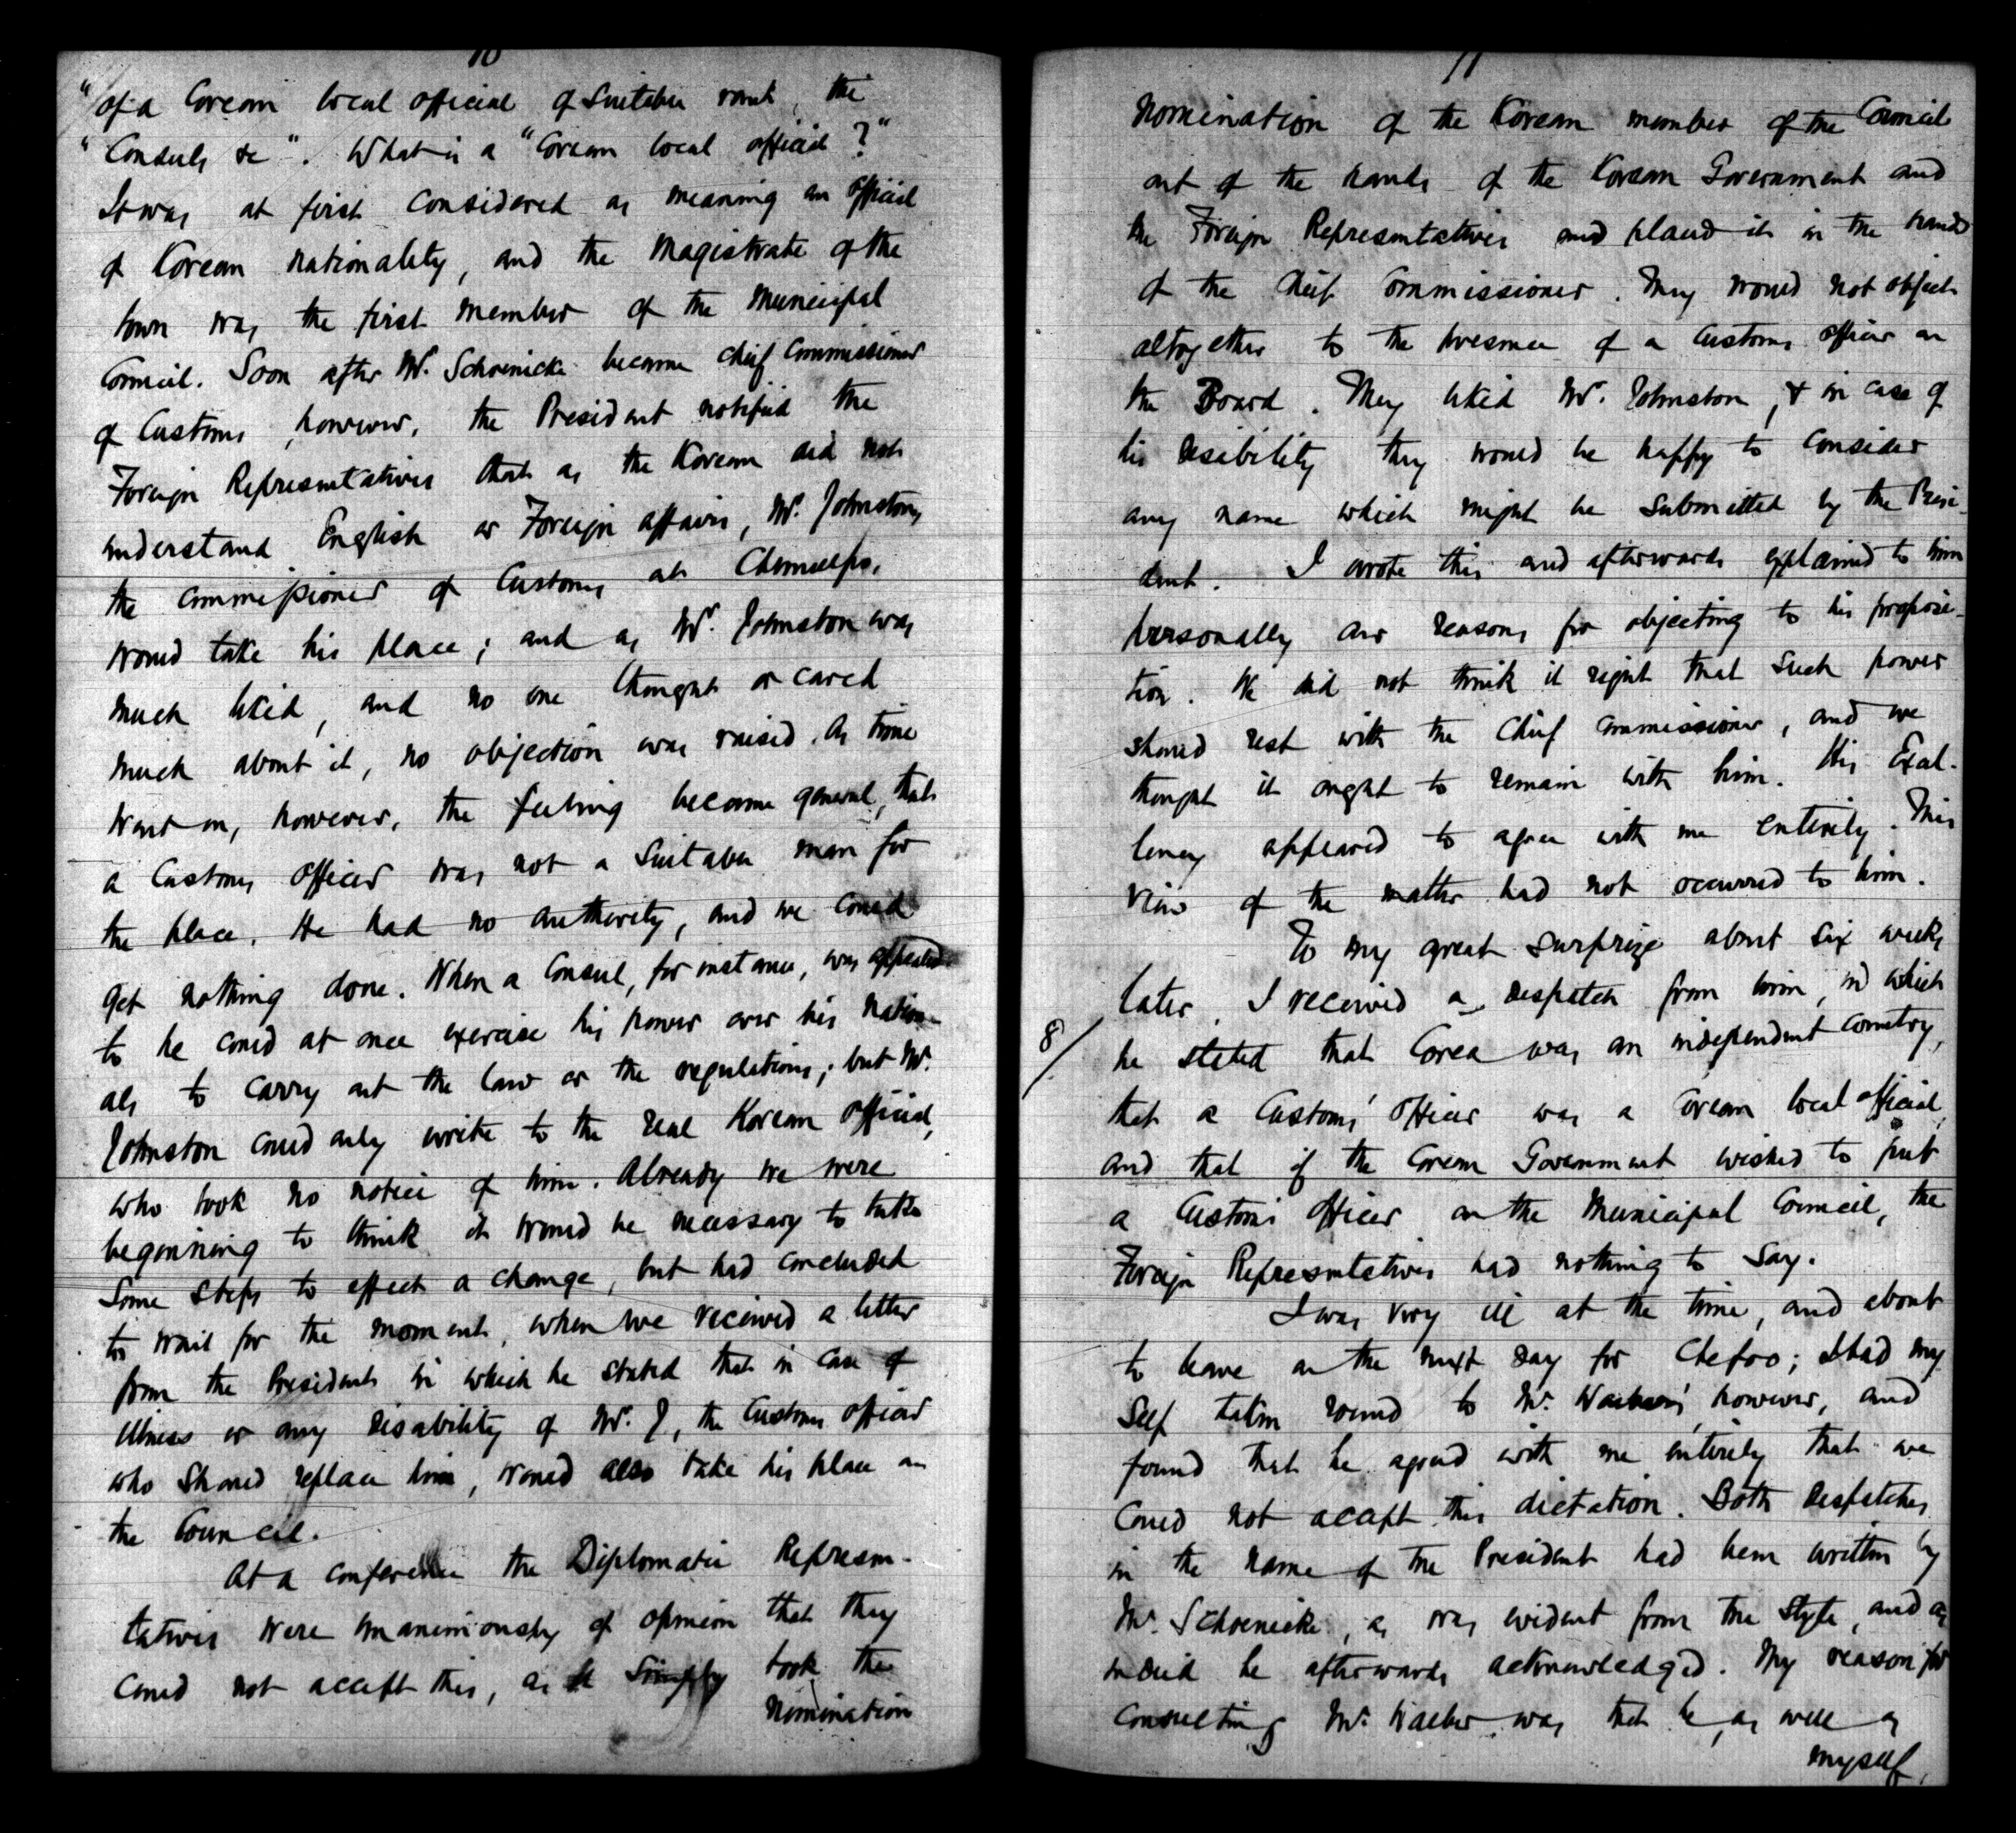 10
"of a Corean local official of suitable rank, the
"Consuls &c". What is a "Corean local official?"
It was at first considered as meaning an official
of Korean nationality, and the Magistrate of the
town was the first member of the Municipal
Council. Soon after Mr. Schoenicke became Chief Commissioner
of Customs, however, the President notified the
Foreign Representatives that as the Korean did not
understand English or Foreign affairs, Mr. Johnston,
the Commissioner of Customs at Chemulpo,
would take his place; and as Mr. Johnston was
much liked, and no one thought or cared
much about it, no objection was raised. As time
went on, however, the feeling became general, that
a Customs officer was not a suitable man for
the place. He had no authority, and we could
get nothing done. When a Consul, for instance, was appealed
to he could at once exercise his power over his nation-
als to carry out the law or the regulations; but Mr.
Johnston could only write to the real Korean official,
who took no notice of him. Already we were
beginning to think it would be necessary to take
some steps to effect a change, but had concluded
to wait for the moment, when we received a letter
from the President in which he stated that in case of
illness or any disability of Mr. J, the Customs officer
who should replace him, would also take his place on
the Council.
At a conference the Diplomatic Represen-
tatives were unanimously of opinion that they
could not accept this, as it simply took the
nomination
11
nomination of the Korean member of the Council
out of the hands of the Korean Government and
the Foreign Representatives and placed it in the hands
of the Chief Commissioner. They would not object
altogether to the presence of a Customs officer on
the Board. They liked Mr. Johnston, & in case of
his disibility they would be happy to consider
any name which might be submitted by the Presi-
dent. I wrote this and afterwards explained to him
personally our reasons for objecting to his proposi-
tion. We did not think it right that such power
should rest with the Chief Commissioner, and we
thought it ought to remain with him. His Excel-
lency appeared to agree with me entirely. This
view of the matter had not occurred to him.
To my great surprize about six weeks
later, I received a despatch from him, in which
8/
he stated that Corea was an independent country,
that a Customs' Officer was a Corean local official,
and that if the Corean Government wished to put
a Customs Officer on the Municipal Council, the
Foreign Representatives had nothing to say.
I was very ill at the time, and about
to leave on the next day for Chefoo; I had my
self taken round to Mr. Waeber's, however, and
found that he agreed with me entirely that we
could not accept this dictation. Both despatches
in the name of the President had been written by
Mr. Schoenicke, as was evident from the style, and as
indeed he afterwards acknowledged. My reason for
consulting Mr. Waeber was that he, as well as
myself,